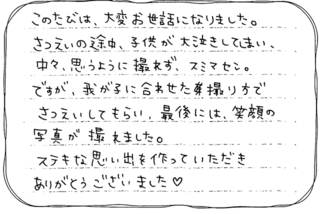 このたびは、大変お世話になりました。
さつえいの途中、子供が大泣きしてしまい、
中々、思うように撮れず、スミマセン。
ですが、我が子に合わせた撮り方で
さつえいしてもらい、最後には、笑顔の
写真が撮れました。
ステキな思い出を作っていただき
ありがとうございました♡